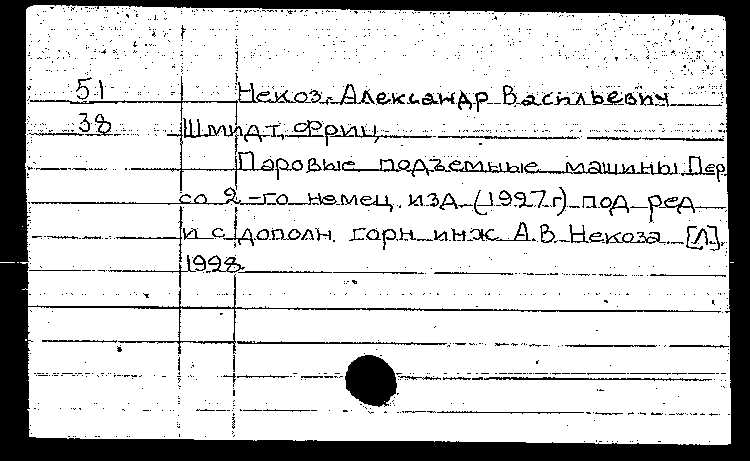 51 Некоз, Александр Васильевич
38 Шмидт, Фриц
Паровые подъемные машины. Пер
со 2-го немец. изд. (1927г) под ред
и с дополн. горн. инж. А.В. Некоза [Л].
1928.